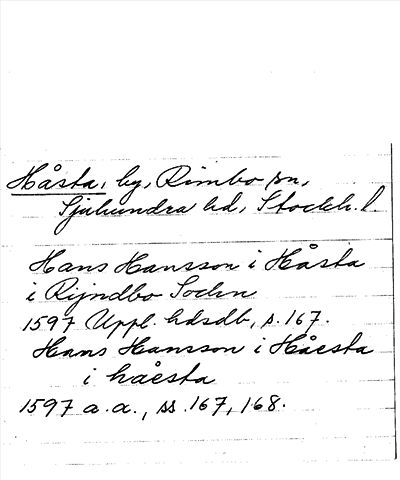 Håsta, by, Rimbo sn,
Sjuhundra hd, Stockh. l.
Hans Hansson i Håsta
i Rijndbo Sochn
1597 Uppl. hdsdb, s. 167.
Hans Hansson i Håesta
i håesta
1597 a. a., ss. 167, 168.